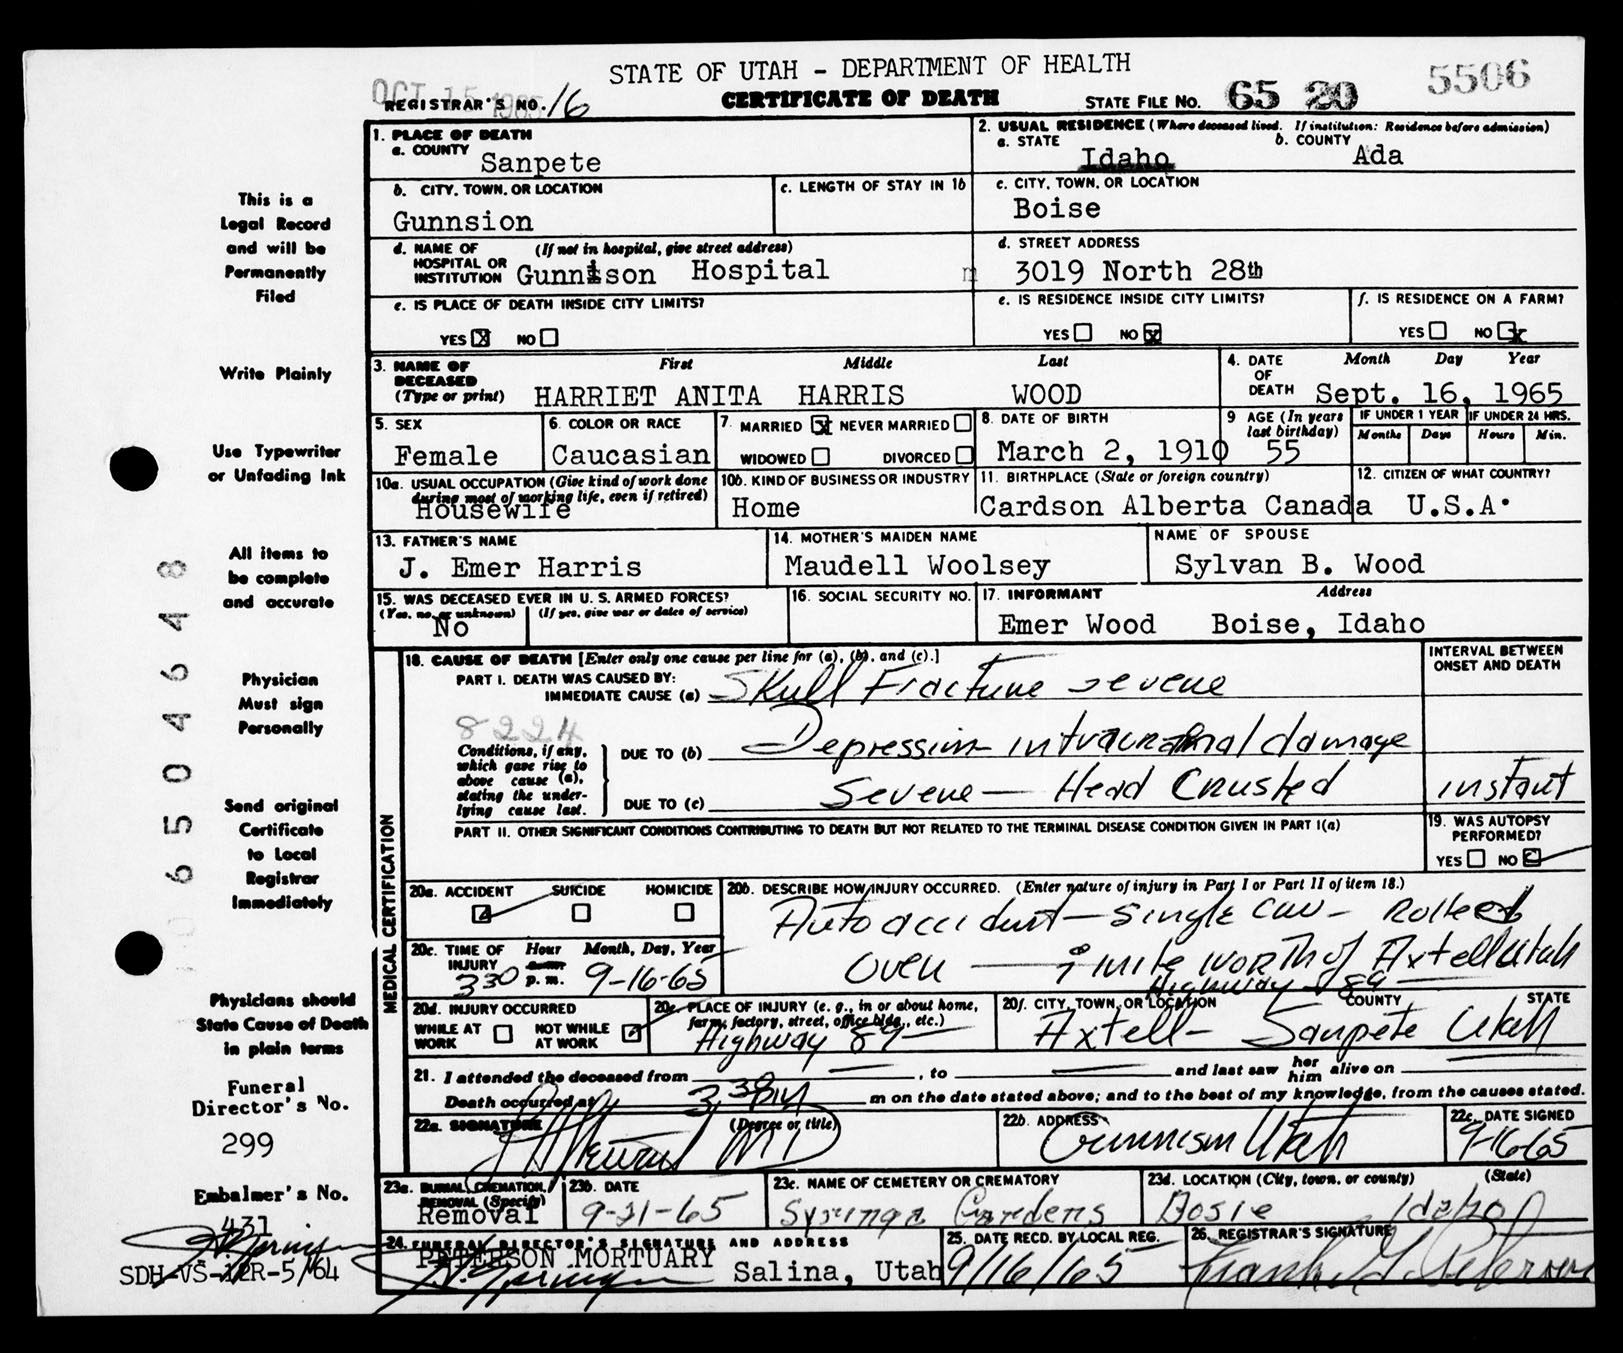 STATE OF UTAH - DEPARTMENT OF HEALTH
CERTIFICATE OF DEATH
OCT 15 1965
REGISTRAR'S NO. 16
STATE FILE NO. 65 20 5506
1. PLACE OF DEATH
a. COUNTY Sanpete
2. USUAL RESIDENCE (Where deceased lived. If institution: Residence before admission)
a. STATE Idaho b. COUNTY Ada
b. CITY, TOWN, OR LOCATION
Gunnsion
c. LENGTH OF STAY IN 1b
c. CITY, TOWN, OR LOCATION
Boise
d. NAME OF HOSPITAL OR INSTITUTION (If not in hospital, give street address)
Gunnison Hospital
d. STREET ADDRESS
3019 North 28th
e. IS PLACE OF DEATH INSIDE CITY LIMITS?
YES X NO
e. IS RESIDENCE INSIDE CITY LIMITS?
YES NO X
f. IS RESIDENCE ON A FARM?
YES NO X
3. NAME OF DECEASED (Type or print)
First Middle Last
HARRIET ANITA HARRIS WOOD
4. DATE OF DEATH
Month Day Year
Sept. 16, 1965
5. SEX
Female
6. COLOR OR RACE
Caucasian
7. MARRIED X NEVER MARRIED
WIDOWED DIVORCED
8. DATE OF BIRTH
March 2, 1910
9 AGE (In years last birthday)
55
IF UNDER 1 YEAR
Months Days
IF UNDER 24 HRS.
Hours Min.
10a. USUAL OCCUPATION (Give kind of work done during most of working life, even if retired)
Housewife
10b. KIND OF BUSINESS OR INDUSTRY
Home
11. BIRTHPLACE (State or foreign country)
Cardson Alberta Canada
12. CITIZEN OF WHAT COUNTRY?
U.S.A.
13. FATHER'S NAME
J. Emer Harris
14. MOTHER'S MAIDEN NAME
Maudell Woolsey
NAME OF SPOUSE
Sylvan B. Wood
15. WAS DECEASED EVER IN U.S. ARMED FORCES?
(Yes, no, or unknown) (If yes, give war or dates of service)
No
16. SOCIAL SECURITY NO.
17. INFORMANT Address
Emer Wood Boise, Idaho
MEDICAL CERTIFICATION
18. CAUSE OF DEATH [Enter only one cause per line for (a), (b), and (c).]
INTERVAL BETWEEN ONSET AND DEATH
PART I. DEATH WAS CAUSED BY:
IMMEDIATE CAUSE (a) Skull Fracture severe
8224
Conditions, if any, which gave rise to above cause (a), stating the underlying cause last.
DUE TO (b) Depression intracranal damage
DUE TO (c) Severe — Head Crusted instant
PART II. OTHER SIGNIFICANT CONDITIONS CONTRIBUTING TO DEATH BUT NOT RELATED TO THE TERMINAL DISEASE CONDITION GIVEN IN PART I(a)
19. WAS AUTOPSY PERFORMED?
YES NO
20a. ACCIDENT SUICIDE HOMICIDE
20b. DESCRIBE HOW INJURY OCCURRED. (Enter nature of injury in Part I or Part II of item 18.)
Auto accident — single car — Rolled
over — mile north of Axtell Utah
Highway 89
20c. TIME OF INJURY
Hour Month, Day, Year
a.m. p.m.
330 9-16-65
20d. INJURY OCCURRED
WHILE AT WORK NOT WHILE AT WORK
20e. PLACE OF INJURY (e. g., in or about home, farm, factory, street, office bldg., etc.)
Highway 89
20f. CITY, TOWN, OR LOCATION COUNTY STATE
Axtell — Sanpete Utah
21. I attended the deceased from , to and last saw her him alive on
Death occurred at 330 PM m on the date stated above; and to the best of my knowledge, from the causes stated.
22a. SIGNATURE (Degree or title)
MD
22b. ADDRESS
Gunnison Utah
22c. DATE SIGNED
9-16-65
23a. BURIAL, CREMATION, REMOVAL (Specify)
Removal
23b. DATE
9-21-65
23c. NAME OF CEMETERY OR CREMATORY
Syringa Gardens
23d. LOCATION (City, town, or county) (State)
Bosie Idaho
24. FUNERAL DIRECTOR'S SIGNATURE AND ADDRESS
PETERSON MORTUARY
Salina, Utah
25. DATE RECD. BY LOCAL REG.
9/16/65
26. REGISTRAR'S SIGNATURE
This is a
Legal Record
and will be
Permanently
Filed
Write Plainly
Use Typewriter
or Unfading Ink
All items to
be complete
and accurate
Physician
Must sign
Personally
Send original
Certificate
to Local
Registrar
Immediately
Physicians should
State Cause of Death
in plain terms
Funeral
Director's No.
299
Embalmer's No.
431
SDH-VS-12R-5/64
6504648